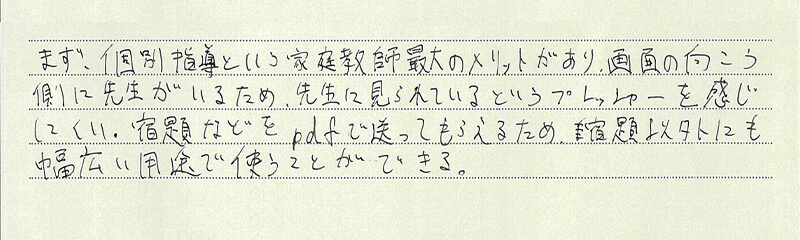 まず、個別指導という家庭教師最大のメリットがあり、画面の向こう
側に先生がいるため、先生に見られているというプレッシャーを感じ
にくい。宿題などをpdfで送ってもらえるため、宿題以外にも
幅広い用途で使うことができる。